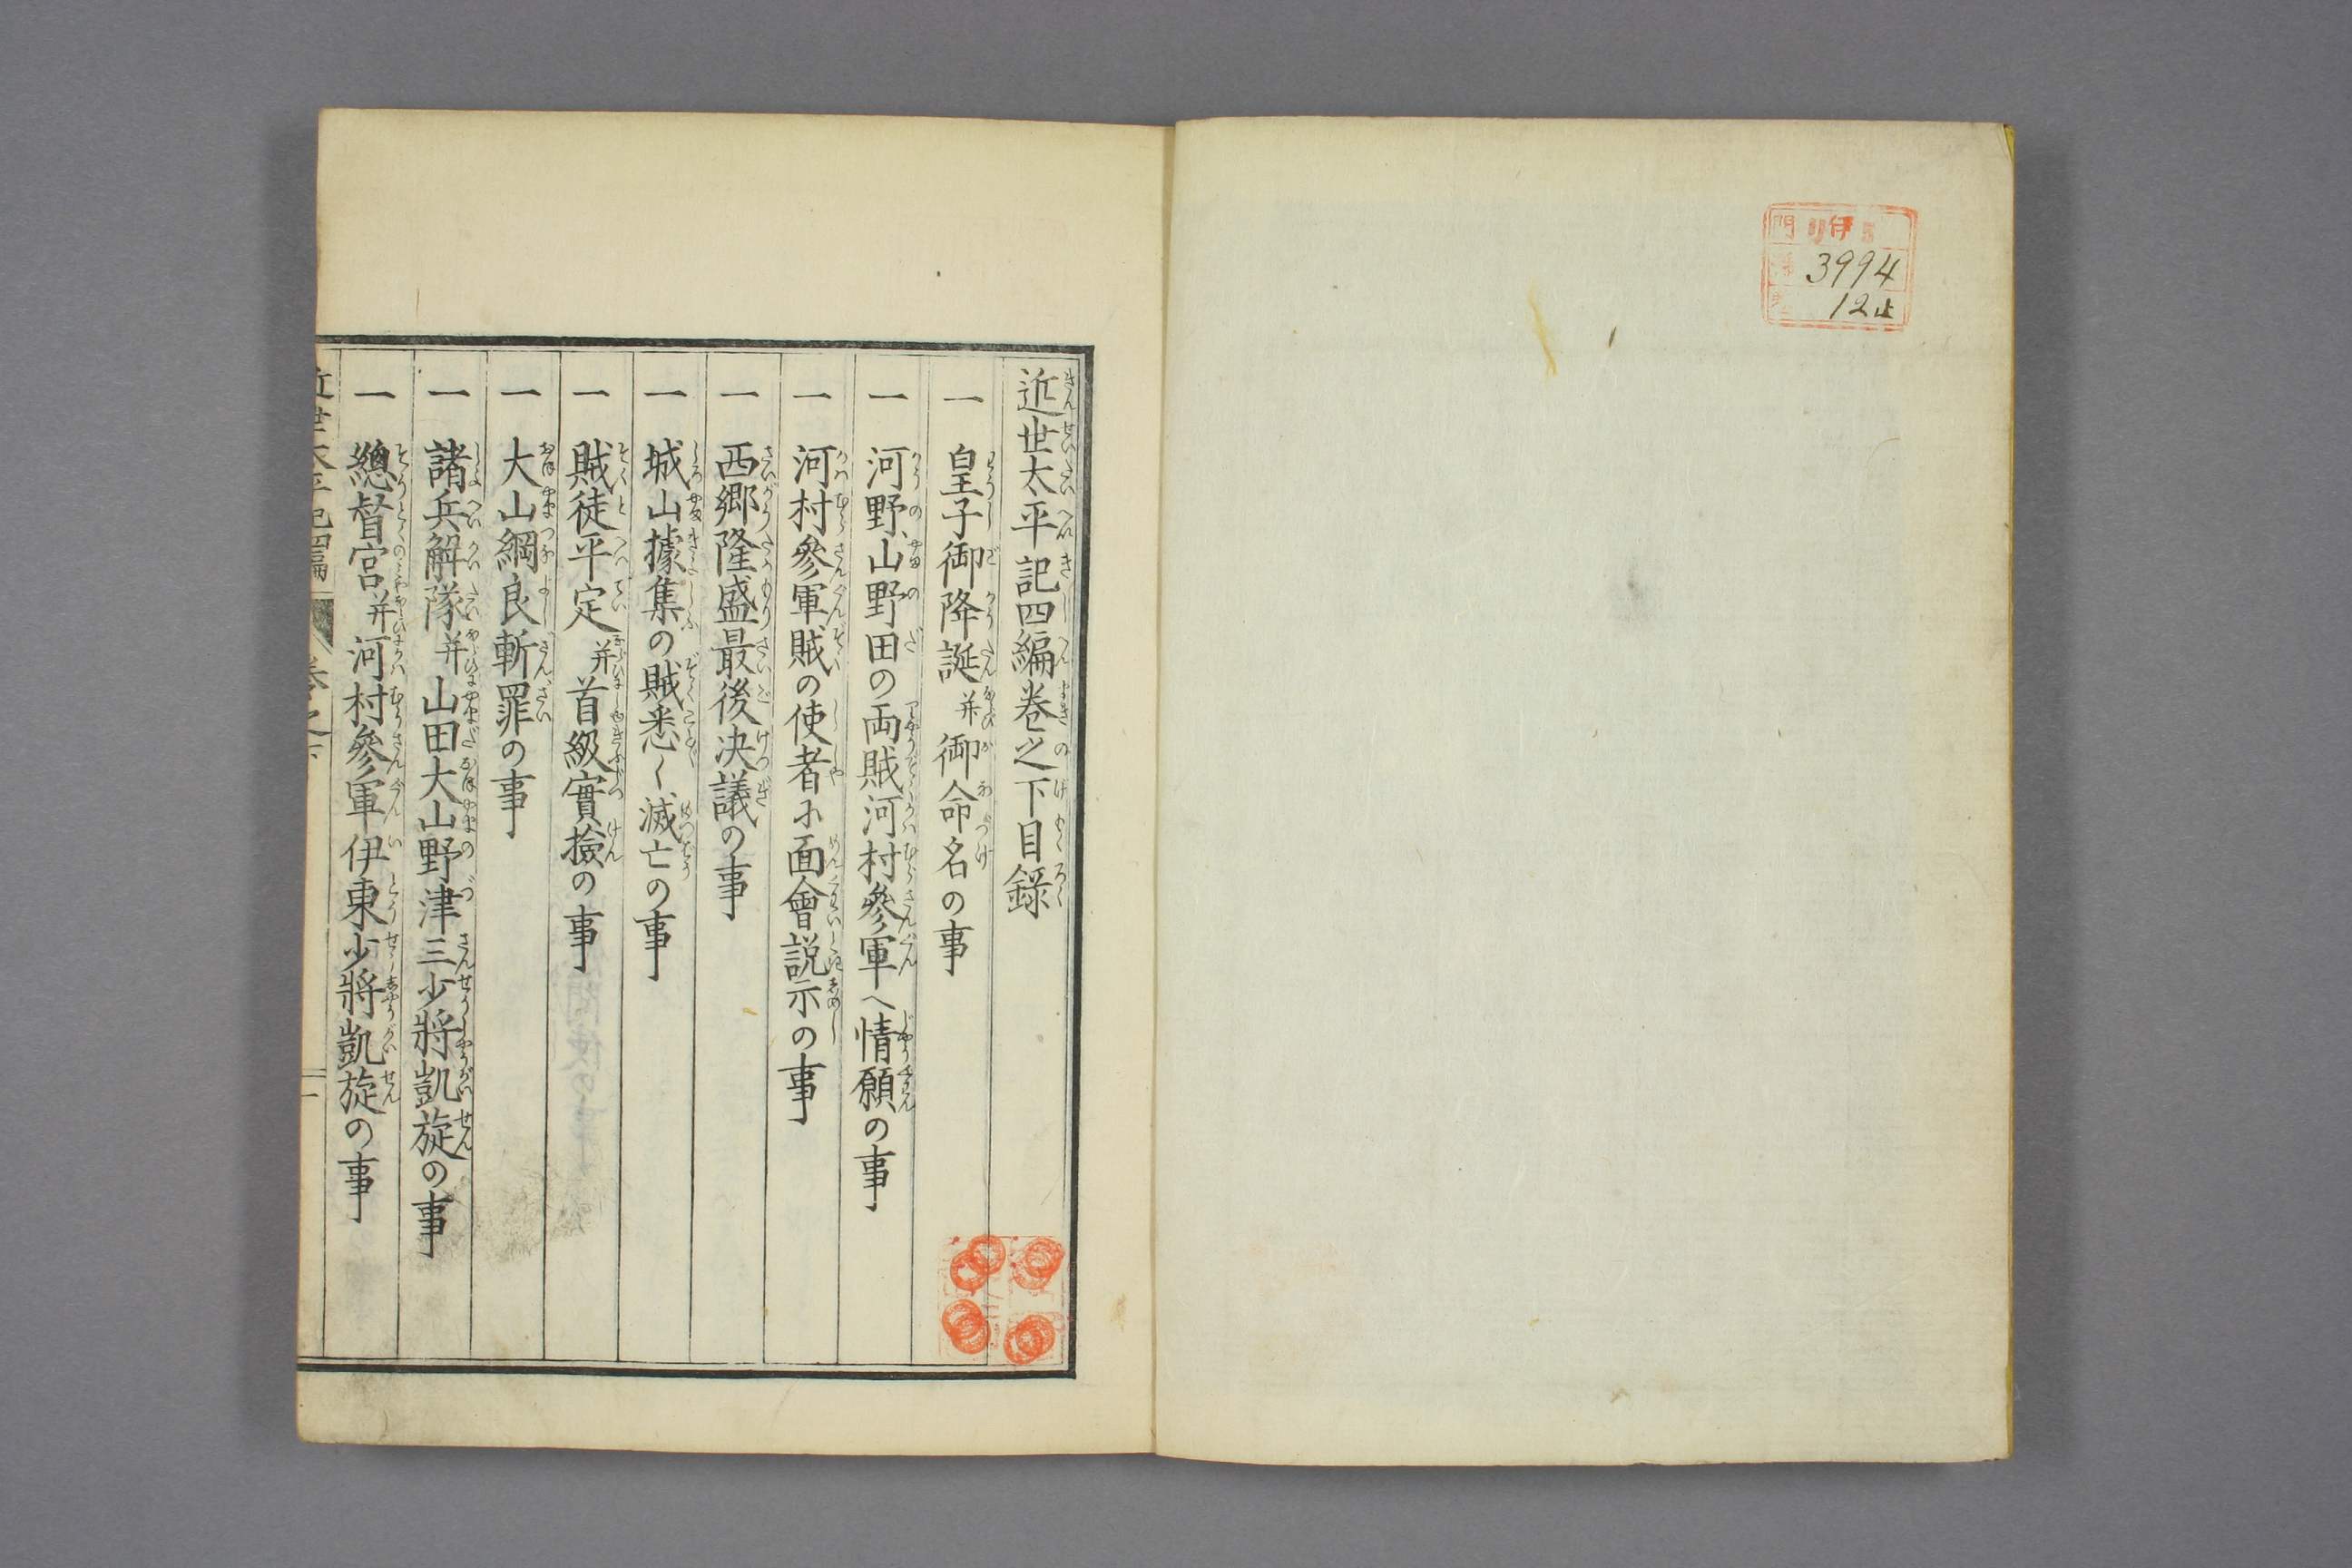 門 伊
3994
12止
近世太平記四編巻之下目録
一 皇子御降誕并御命名の事
一 河野、山野田の両賊河村參軍へ情願の事
一 河村參軍賊の使者に面會説示の事
一 西郷隆盛最後決議の事
一 城山據集の賊悉く滅亡の事
一 賊徒平定并首級實撿の事
一 大山綱良斬罪の事
一 諸兵解隊并山田大山野津三少將凱旋の事
一 總督宮并河村參軍伊東少將凱旋の事
近世太平記四編 巻之下 一